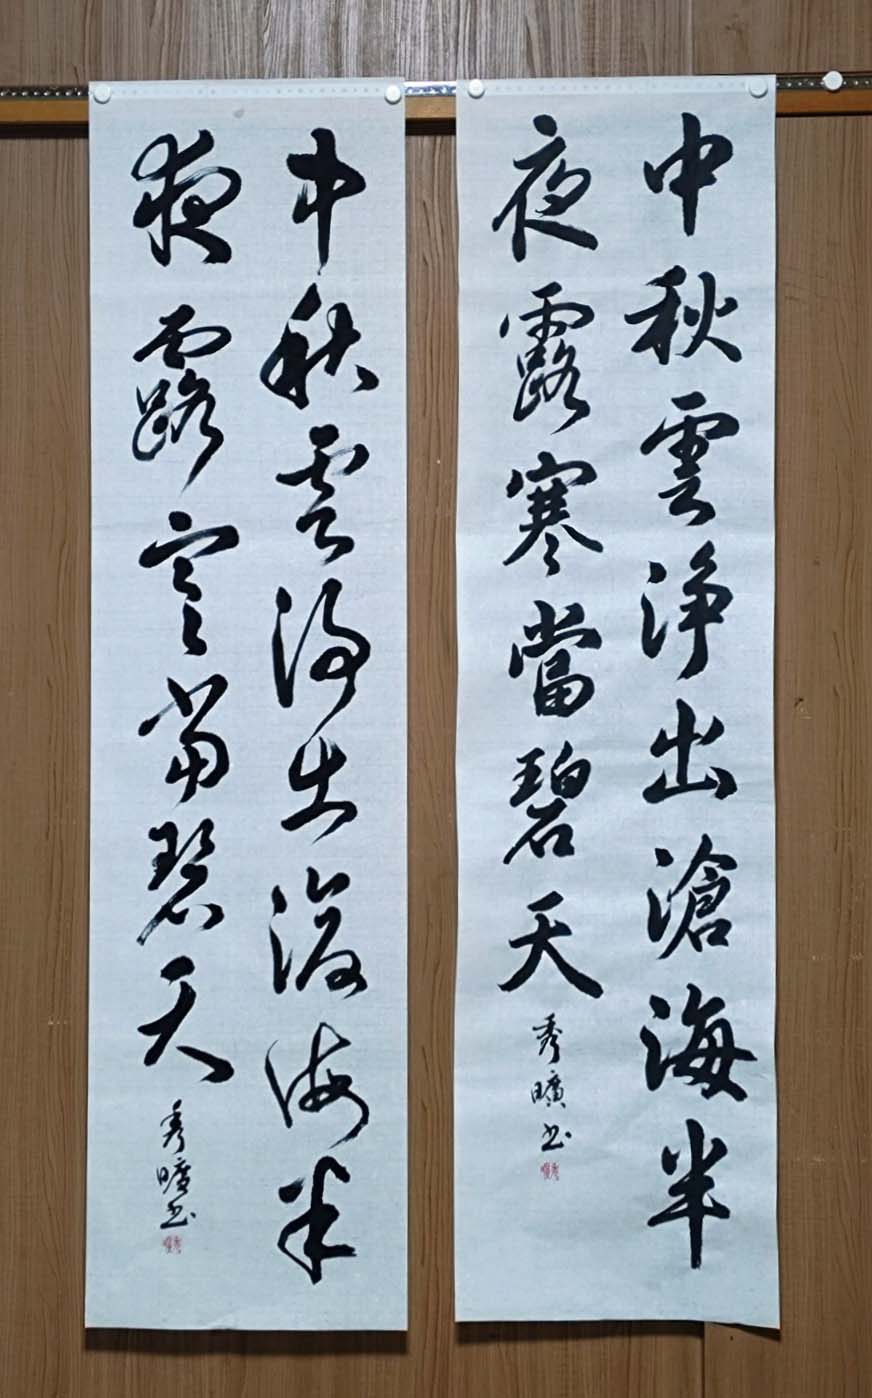 中秋雲淨出滄海半
夜露寒當碧天
秀曠书
中秋雲淨出滄海半
夜露寒當碧天
秀曠书